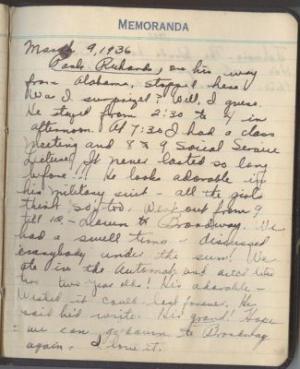 MEMORANDA
March 9, 1936
Paul Richards, on his way
from Alabama, stopped here.
Was I surprized? Well, I guess.
He stayed from 2:30 to 4 in
afternoon. At 7:30 I had a class
meeting and 8 & 9, Social Service
Lecture. It never lasted so long
before!!! He looks adorable in
his military suit - all the girls
think so, too. Went out from 9
till 12 - down to Broadway. We
had a swell time - discussed
everybody under the sun! We
ate in the Automat and acted like
two year olds! He's adorable -
Wished it could last forever. He
said he'd write. He's grand! Hope
we can go down to Broadway
again. I love it.